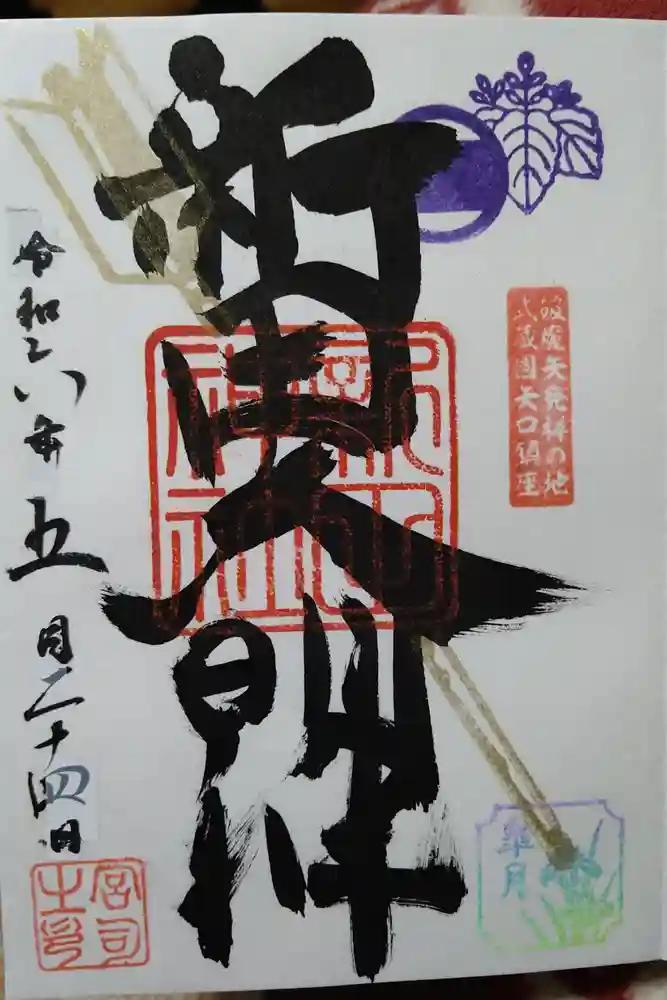 破魔矢発祥の地
武蔵國矢口鎮座
新田大明神
新田
神社
令和六年五月二十四日
皐月
宮司
之印